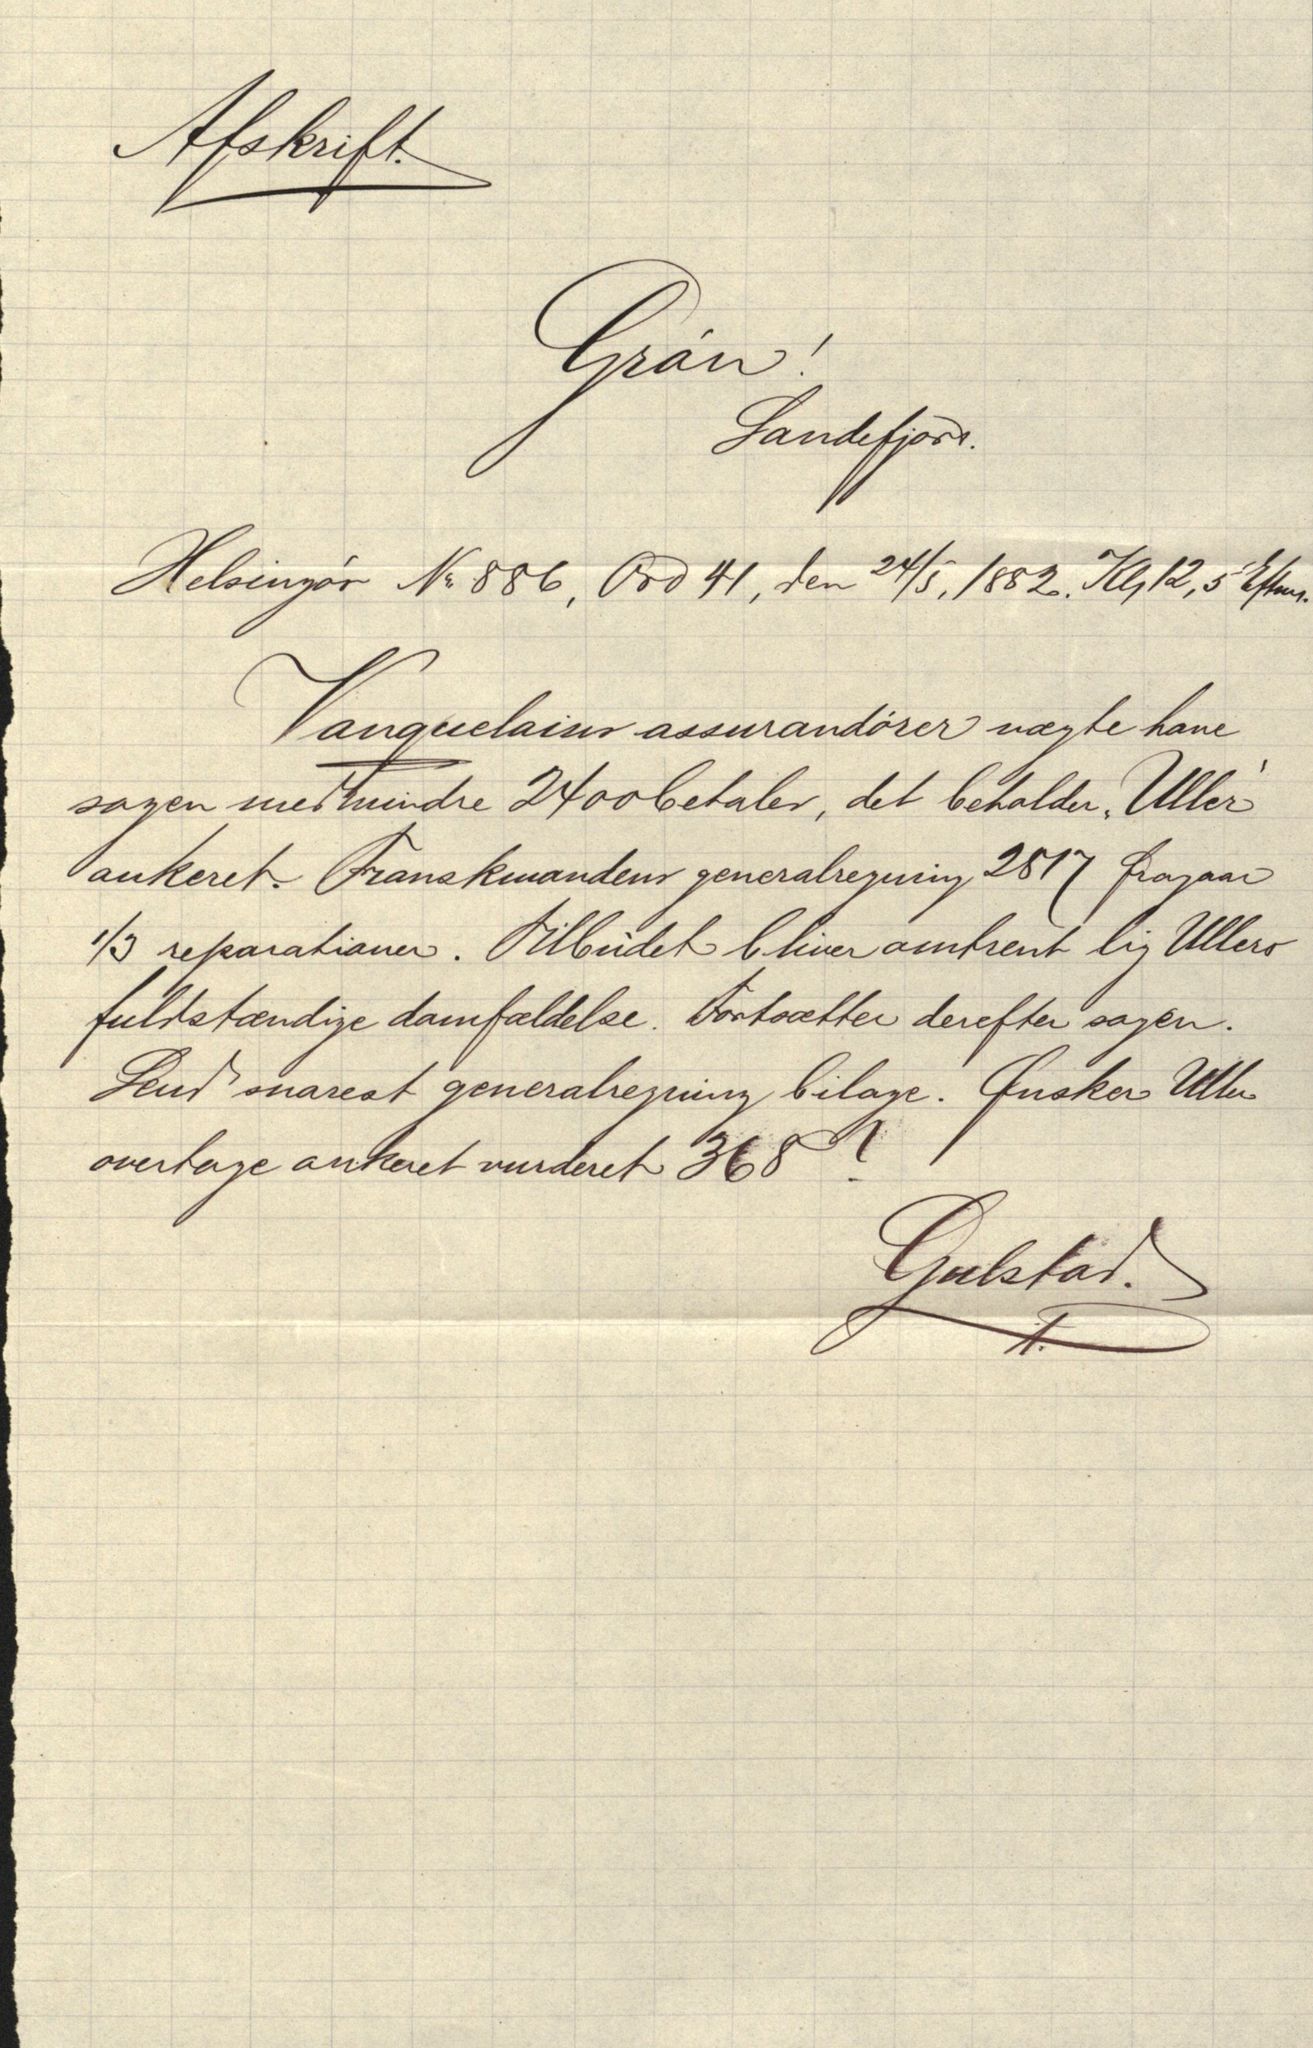 Afskrift.
Grøn!
Sandefjord.
Helsingør No 886, Ord 41, den 24/5, 1882. Kl, 12,5 Efterm.
Vanquelains assurandører nægte hæve
sagen medmindre 2400 betaler, det beholder, Uller
ankeret. Franskmandens generalregning 2817 fragaar
1/3 reparationer. Tilbudet bliver omtrent lig Ullers
fuldstændige domfældelse. Fortsætter derefter sagen.
Send snarest generalregning bilage. Ønsker Uller
overtage ankeret vurderet 368?
Gulstad.